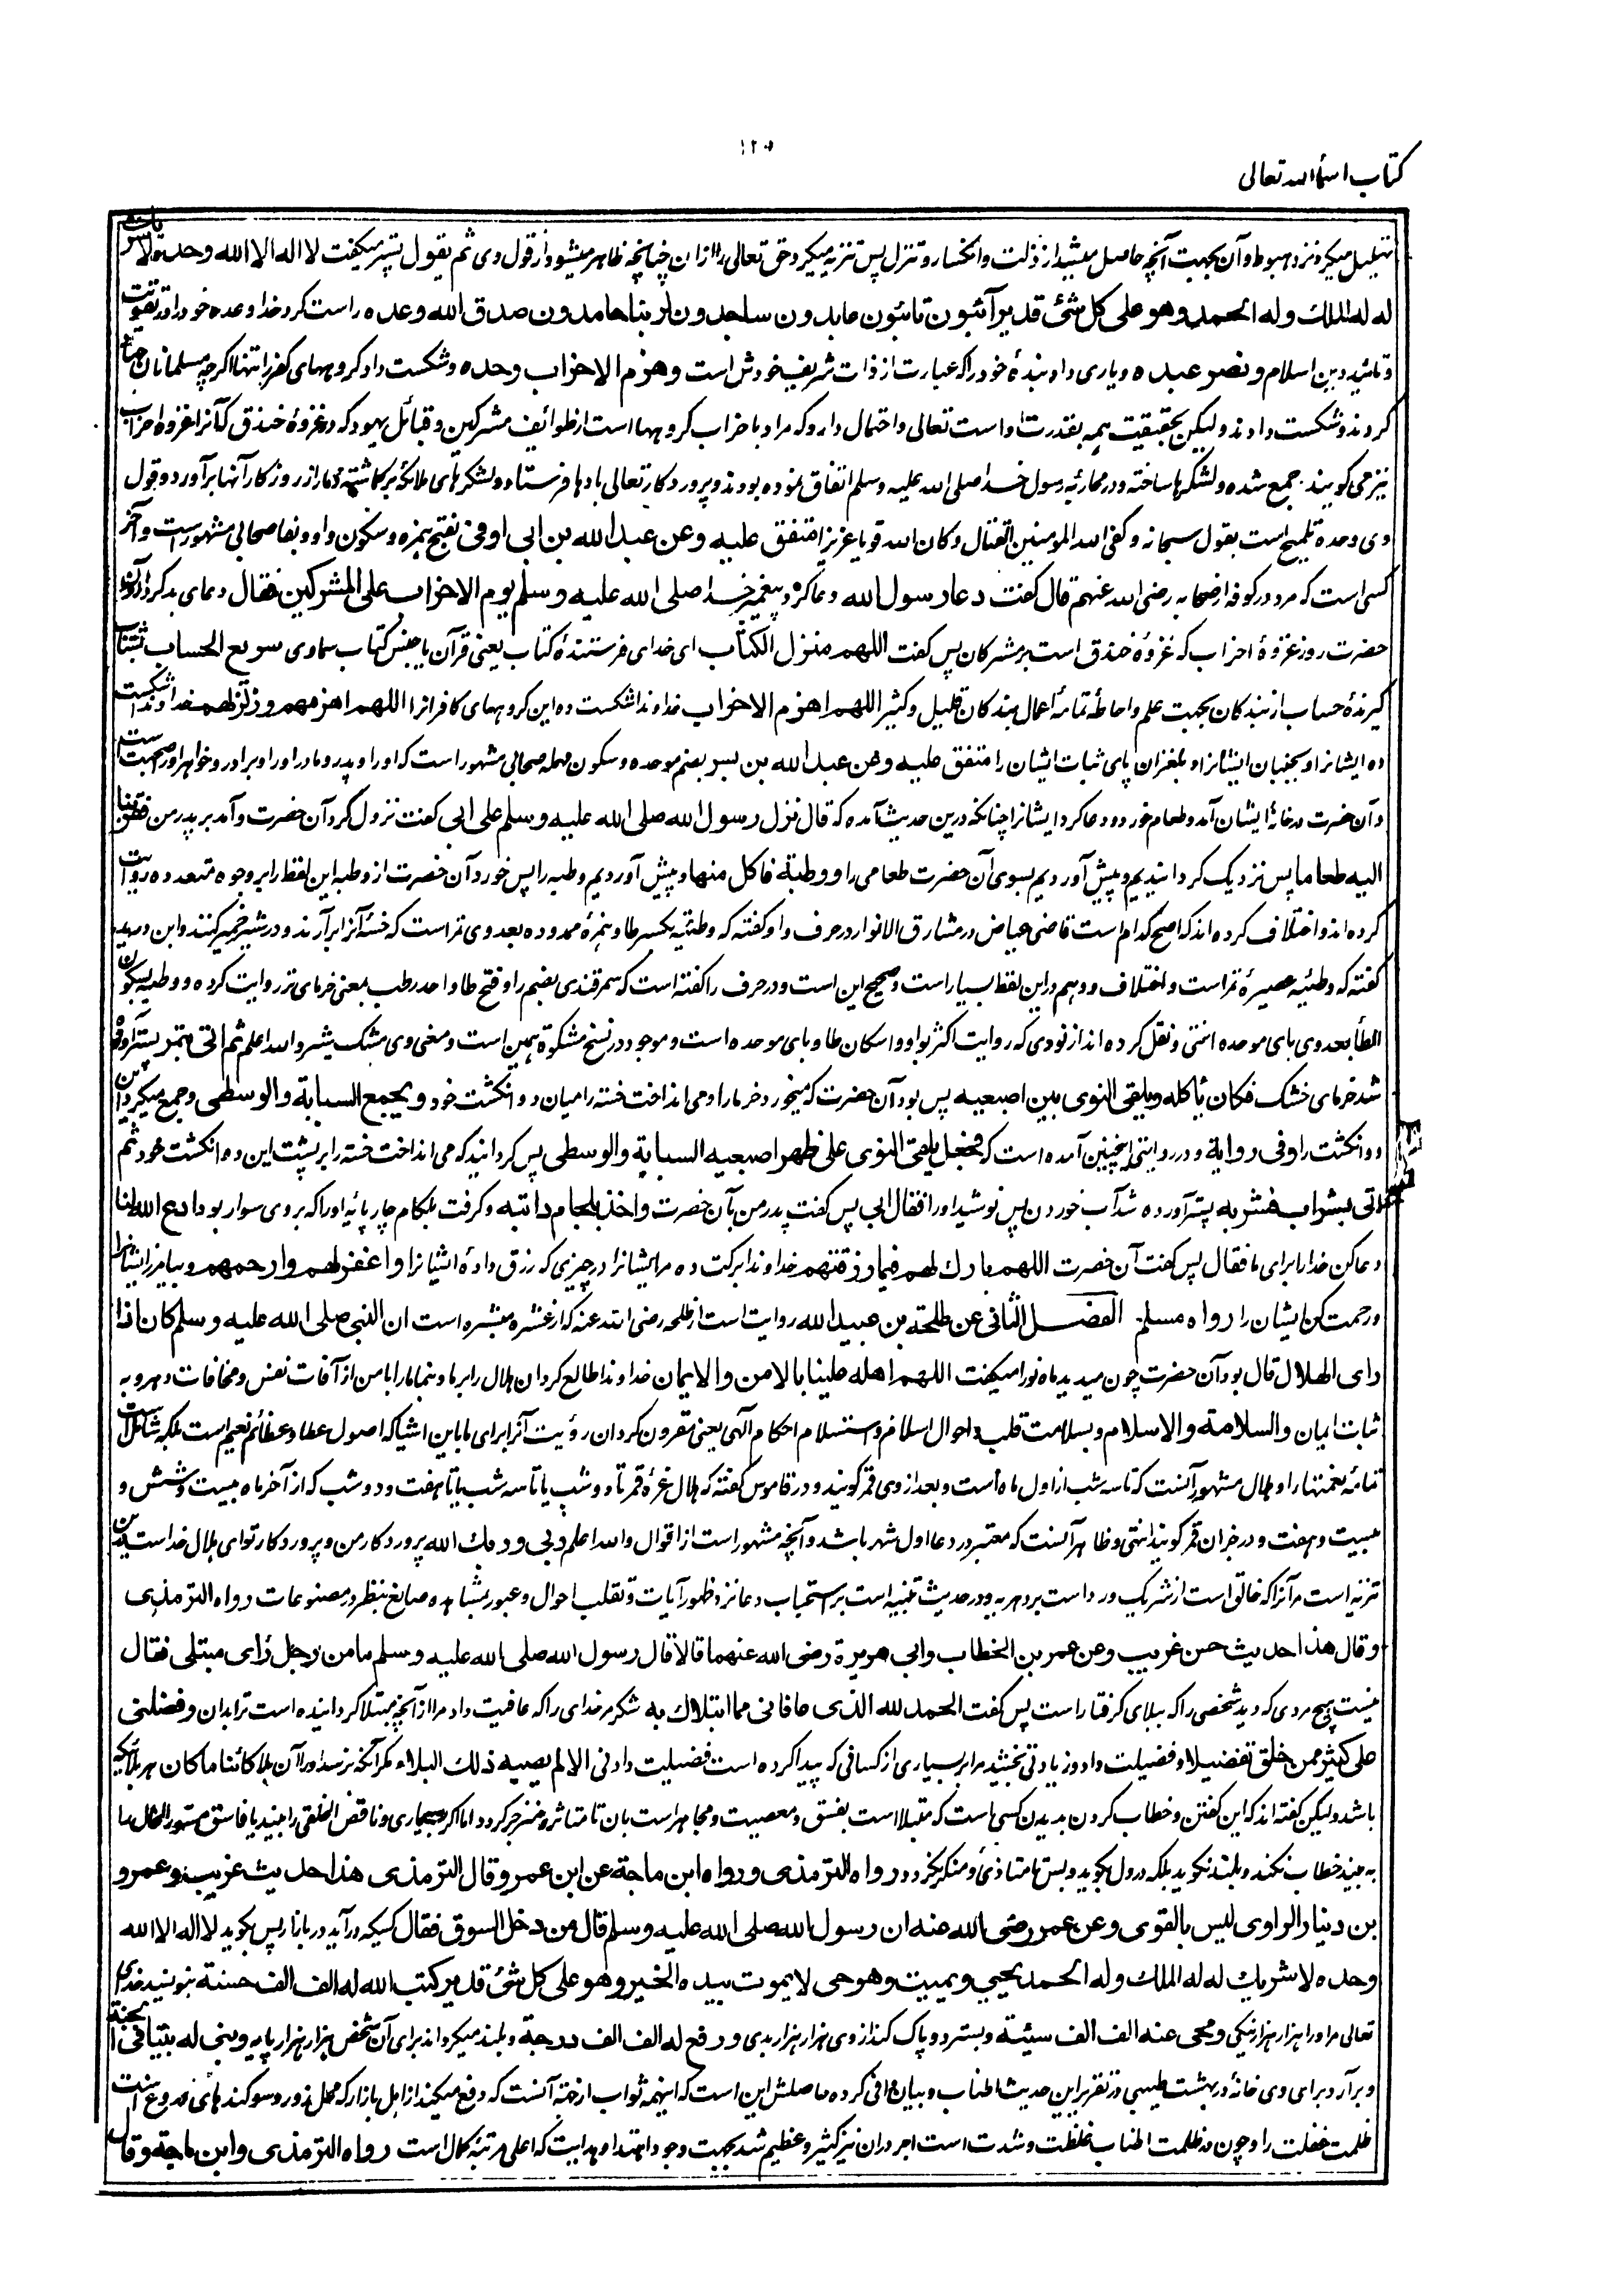 ۱۲۰
کتاب اسماء الله تعالی
تهلیل میکرد نزد هبوط و آن بجهت آنچه حاصل میشد از ذلت و انکسار و تنزل پس تنزیه میکرد حق تعالی را ازان چنانچه ظاهر میشود از قول وی ثم یقول پستر میگفت لا اله الا الله وحده لا شریک
له له الملك وله الحمد وهو علی کل شئ قدیر آئبون تائبون عابدون ساجدون لربنا حامدون صدق الله وعده راست کرد خدا وعده خود را در تقویت
و تائید دین اسلام ونصر عبده و یاری داد بندهٔ خود را که عبارت از ذات شریف خودش است وهزم الاحزاب وحده و شکست داد گروههای کفر را تنها اگرچه مسلمانان جنگ
کردند و شکست دادند ولیکن بحقیقت همه بقدرت او است تعالی و احتمال دارد که مراد باحزاب گروهها است از طوائف مشرکین و قبائل یهود که در غزوهٔ خندق که آنرا غزوهٔ احزاب
نیز می گویند جمع شده و لشکرها ساخته و در محاربهٔ رسول خدا صلی الله علیه وسلم اتفاق نموده بودند و پروردگار تعالی بادها فرستاد و لشکرهای ملائکه برگماشته دمار از روزگار آنها برآورد و قول
وی وحده تلمیح است بقول سبحانه و کفی الله المؤمنین القتال وکان الله قویا عزیزا متفق علیه وعن عبد الله بن ابی اوفی بفتح همزه و سکون واو و بفا صحابی مشهور است و آخر
کسی است که مرد در کوفه از صحابه رضی الله عنهم قال گفت دعا رسول الله دعا کرد پیغمبر خدا صلی الله علیه وسلم یوم الاحزاب علی المشرکین فقال دعای بد کرد آن
حضرت روز غزوهٔ احزاب که غزوهٔ خندق است بر مشرکان پس گفت اللهم منزل الکتاب ای خدای فرستندهٔ کتاب یعنی قرآن یا جنس کتاب سماوی سریع الحساب شتاب
گیرندهٔ حساب از بندگان بجهت علم و احاطهٔ تمامهٔ اعمال بندگان قلیل و کثیر اللهم اهزم الاحزاب خداوندا شکست ده این گروههای کافر انرا اللهم اهزمهم وزلزلهم خداوندا شکست
ده ایشانرا و بجنبان ایشانرا و بلغزان پای ثبات ایشان را متفق علیه وعن عبد الله بن بسر بضم موحده و سکون مهمله صحابی مشهور است که او را و پدر و مادر او را و برادر و خواهر او را صحبت است
و آن حضرت در خانهٔ ایشان آمد و طعام خورد و دعا کرد ایشانرا چنانکه درین حدیث آمده که قال نزل رسول الله صلی الله علیه وسلم علی ابی گفت نزول کرد آن حضرت و آمد بر پدر من فقربنا
الیه طعاما پس نزدیک گردانیدیم و پیش آوردیم بسوی آن حضرت طعامی را ووطبة فاکل منها و پیش آوردیم وطبه را پس خورد آن حضرت از وطبه این لفظ را بر وجوه متعدده روایت
کرده اند و اختلاف کرده اند که اصح کدام است قاضی عیاض در مشارق الانوار در حرف واو گفته که وطئیه بکسر طا و همزهٔ ممدوده بعد وی تمر است که خستهٔ آنرا برآرند و در شیر خمیر کنند و ابن درید
گفته که وطئیه عصیدهٔ تمر است و اختلاف و وهم در این لفظ بسیار است و صحیح این است و در حرف را گفته است که سمرقندی بضم را و فتح طا واحد رطب بمعنی خرمای تر روایت کرده و وطبه بسکون
الطا بعد وی بای موحده انتهی و نقل کرده اند از نووی که روایت اکثر بواو و اسکان طا و بای موحده است و موجود در نسخ مشکوة همین است و معنی وی مشک شیر والله اعلم ثم اتی بتمر پستر آورده
شد خرمای خشک فکان یأکله ویلقی النوی بین اصبعیه پس بود آن حضرت که میخورد خرما را و می انداخت خسته را میان دو انگشت خود ویجمع السبابة والوسطی و جمع میکرد این
دو انگشت را وفی روایة و در روایتی اینچنین آمده است که فجعل یلقی النوی علی ظهر اصبعیه السبابة والوسطی پس گردانید که می انداخت خسته را بر پشت این دو انگشت خود ثم
اتی بشراب فشربه پستر آورده شد آب خوردن پس نوشید او را فقال ابی پس گفت پدر من بآن حضرت واخذ بلجام دابته و گرفت بلگام چارپائیه او را که بروی سوار بود ادع الله لنا
دعا کن خدا را برای ما فقال پس گفت آن حضرت اللهم بارك لهم فیما رزقتهم خداوندا برکت ده مر ایشانرا در چیزی که رزق دادهٔ ایشانرا واغفر لهم وارحمهم و بیامرز ایشانرا
و رحمت کن ایشان را رواه مسلم الفصل الثانی عن طلحة بن عبید الله روایت است از طلحه رضی الله عنه که از عشرهٔ مبشره است ان النبی صلی الله علیه وسلم کان اذا
رای الهلال قال بود آن حضرت چون میدید ماه نو را میگفت اللهم اهله علینا بالامن والایمان خداوندا طالع گردان هلال را بر ما و بنما ما را با من از آفات نفس و مخافات دهر و به
ثبات ایمان والسلامة والاسلام و بسلامت قلب و احوال اسلام و استسلام احکام الهی یعنی مقرون گردان رؤیت آنرا برای ما باین اشیا که اصول عطا و عظائم نعیم است بلکه شامل است
تمامهٔ نعمتها را و هلال مشهور آنست که تا سه شب از اول ماه است و بعد از وی قمر گویند و در قاموس گفته که هلال غرهٔ قمر تا دو شب یا تا سه شب یا تا هفت و دو شب که از آخر ماه بیست و شش و
بیست و هفت و در جز آن قمر گویند انتهی و ظاهر آنست که معتبر در دعا اول شهر باشد و آنچه مشهور است از اقوال والله اعلم ربی وربك الله پروردگار من و پروردگار تو ای هلال خدا است این
تنزیه است مر آنرا که خالق است از شریک و رد است بر دهریه و در حدیث تنبیه است بر استحباب دعا نزد ظهور آیات و تقلب احوال و عبور بمشاهدهٔ صانع بنظر در مصنوعات رواه الترمذی
وقال هذا حدیث حسن غریب وعن عمر بن الخطاب وابی هریرة رضی الله عنهما قالا قال رسول الله صلی الله علیه وسلم ما من رجل رای مبتلی فقال
نیست هیچ مردی که دید شخصی را که ببلای گرفتار است پس گفت الحمد لله الذی عافانی مما ابتلاك به شکر مر خدای را که عافیت داد مرا از آنچه مبتلا گردانیده است ترا بدان وفضلنی
علی کثیر ممن خلق تفضیلا و فضیلت داد و زیادتی بخشید مرا بر بسیاری از کسانی که پیدا کرده است فضیلت دادنی الا لم یصبه ذلك البلاء مگر آنکه نرسد او را آن بلا کائنا ما کان هر بلائیکه
باشد ولیکن گفته اند که این گفتن و خطاب کردن بدیدن کسی است که مبتلا است بفسق و معصیت و مجاهر است بان تا متاثر و منزجر گردد اما اگر بیماری و ناقص الخلقتی را بیند یا فاسق مستور الحال را
به بیند خطاب نکند و بلند نگوید بلکه در دل بگوید و بس تا متاذی و منکر نگردد رواه الترمذی ورواه ابن ماجة عن ابن عمر وقال الترمذی هذا حدیث غریب وعمرو
بن دینار الراوی لیس بالقوی وعن عمر رضی الله عنه ان رسول الله صلی الله علیه وسلم قال من دخل السوق فقال کسیکه درآید در بازار پس بگوید لا اله الا الله
وحده لا شریك له له الملك وله الحمد یحیی ویمیت وهو حی لا یموت بیده الخیر وهو علی کل شئ قدیر کتب الله له الف الف حسنة بنویسد خدای
تعالی مر او را هزار هزار نیکی ومحی عنه الف الف سیئة و بسترد و پاک کند از وی هزار هزار بدی ورفع له الف الف درجة و بلند میگرداند برای آن شخص هزار هزار پایه وبنی له بیتا فی الجنة
و برآرد برای وی خانهٔ در بهشت طیبی در تقریر این حدیث اطناب و بیان وافی کرده حاصلش این است که اینهمه ثواب ازجهت آنست که دفع میکند از اهل بازار که محل زور و سوگندهای دروغ است
ظلمت غفلت را و چون در ظلمت اطناب غلظت و شدت است اجر دران نیز کثیر و عظیم شد بجهت وجود اهتدا و هدایت که اعلی مرتبهٔ کمال است رواه الترمذی وابن ماجة وقال